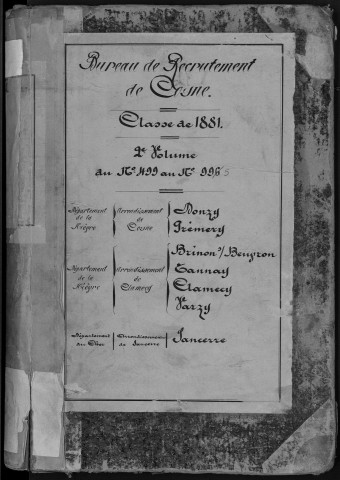 Bureau de Recrutement
de Cosne.
Classe de 1881.
2e Volume
du No 499 au No 996
Département de la Nièvre
Arrondissement de Cosne
Donzy
Prémery
Département de la Nièvre
Arrondissement de Clamecy
Brinon s/ Beuvron
Tannay
Clamecy
Varzy
Département du Cher
Arrondissement de Sancerre
Sancerre